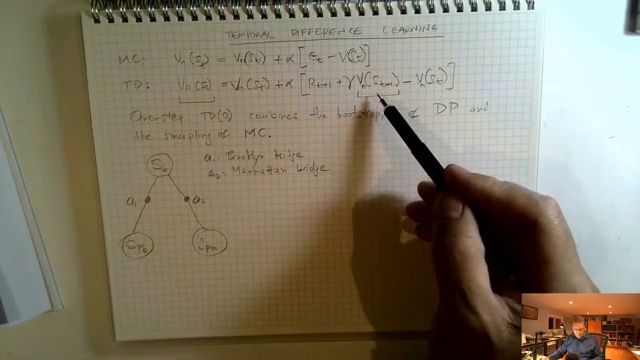 TEMPORAL DIFFERENCE LEARNING
MC: Vπ(St) = Vπ(St) + α [Gt − V(St)]
TD: Vπ(St) = Vπ(St) + α [Rt+1 + γ Vπ(St+1) − Vπ(St)]
One-step TD(0) combines the bootstrapping of DP and
the sampling of MC.
a1: Brooklyn bridge
a2: Manhattan bridge
S0
a1 a2